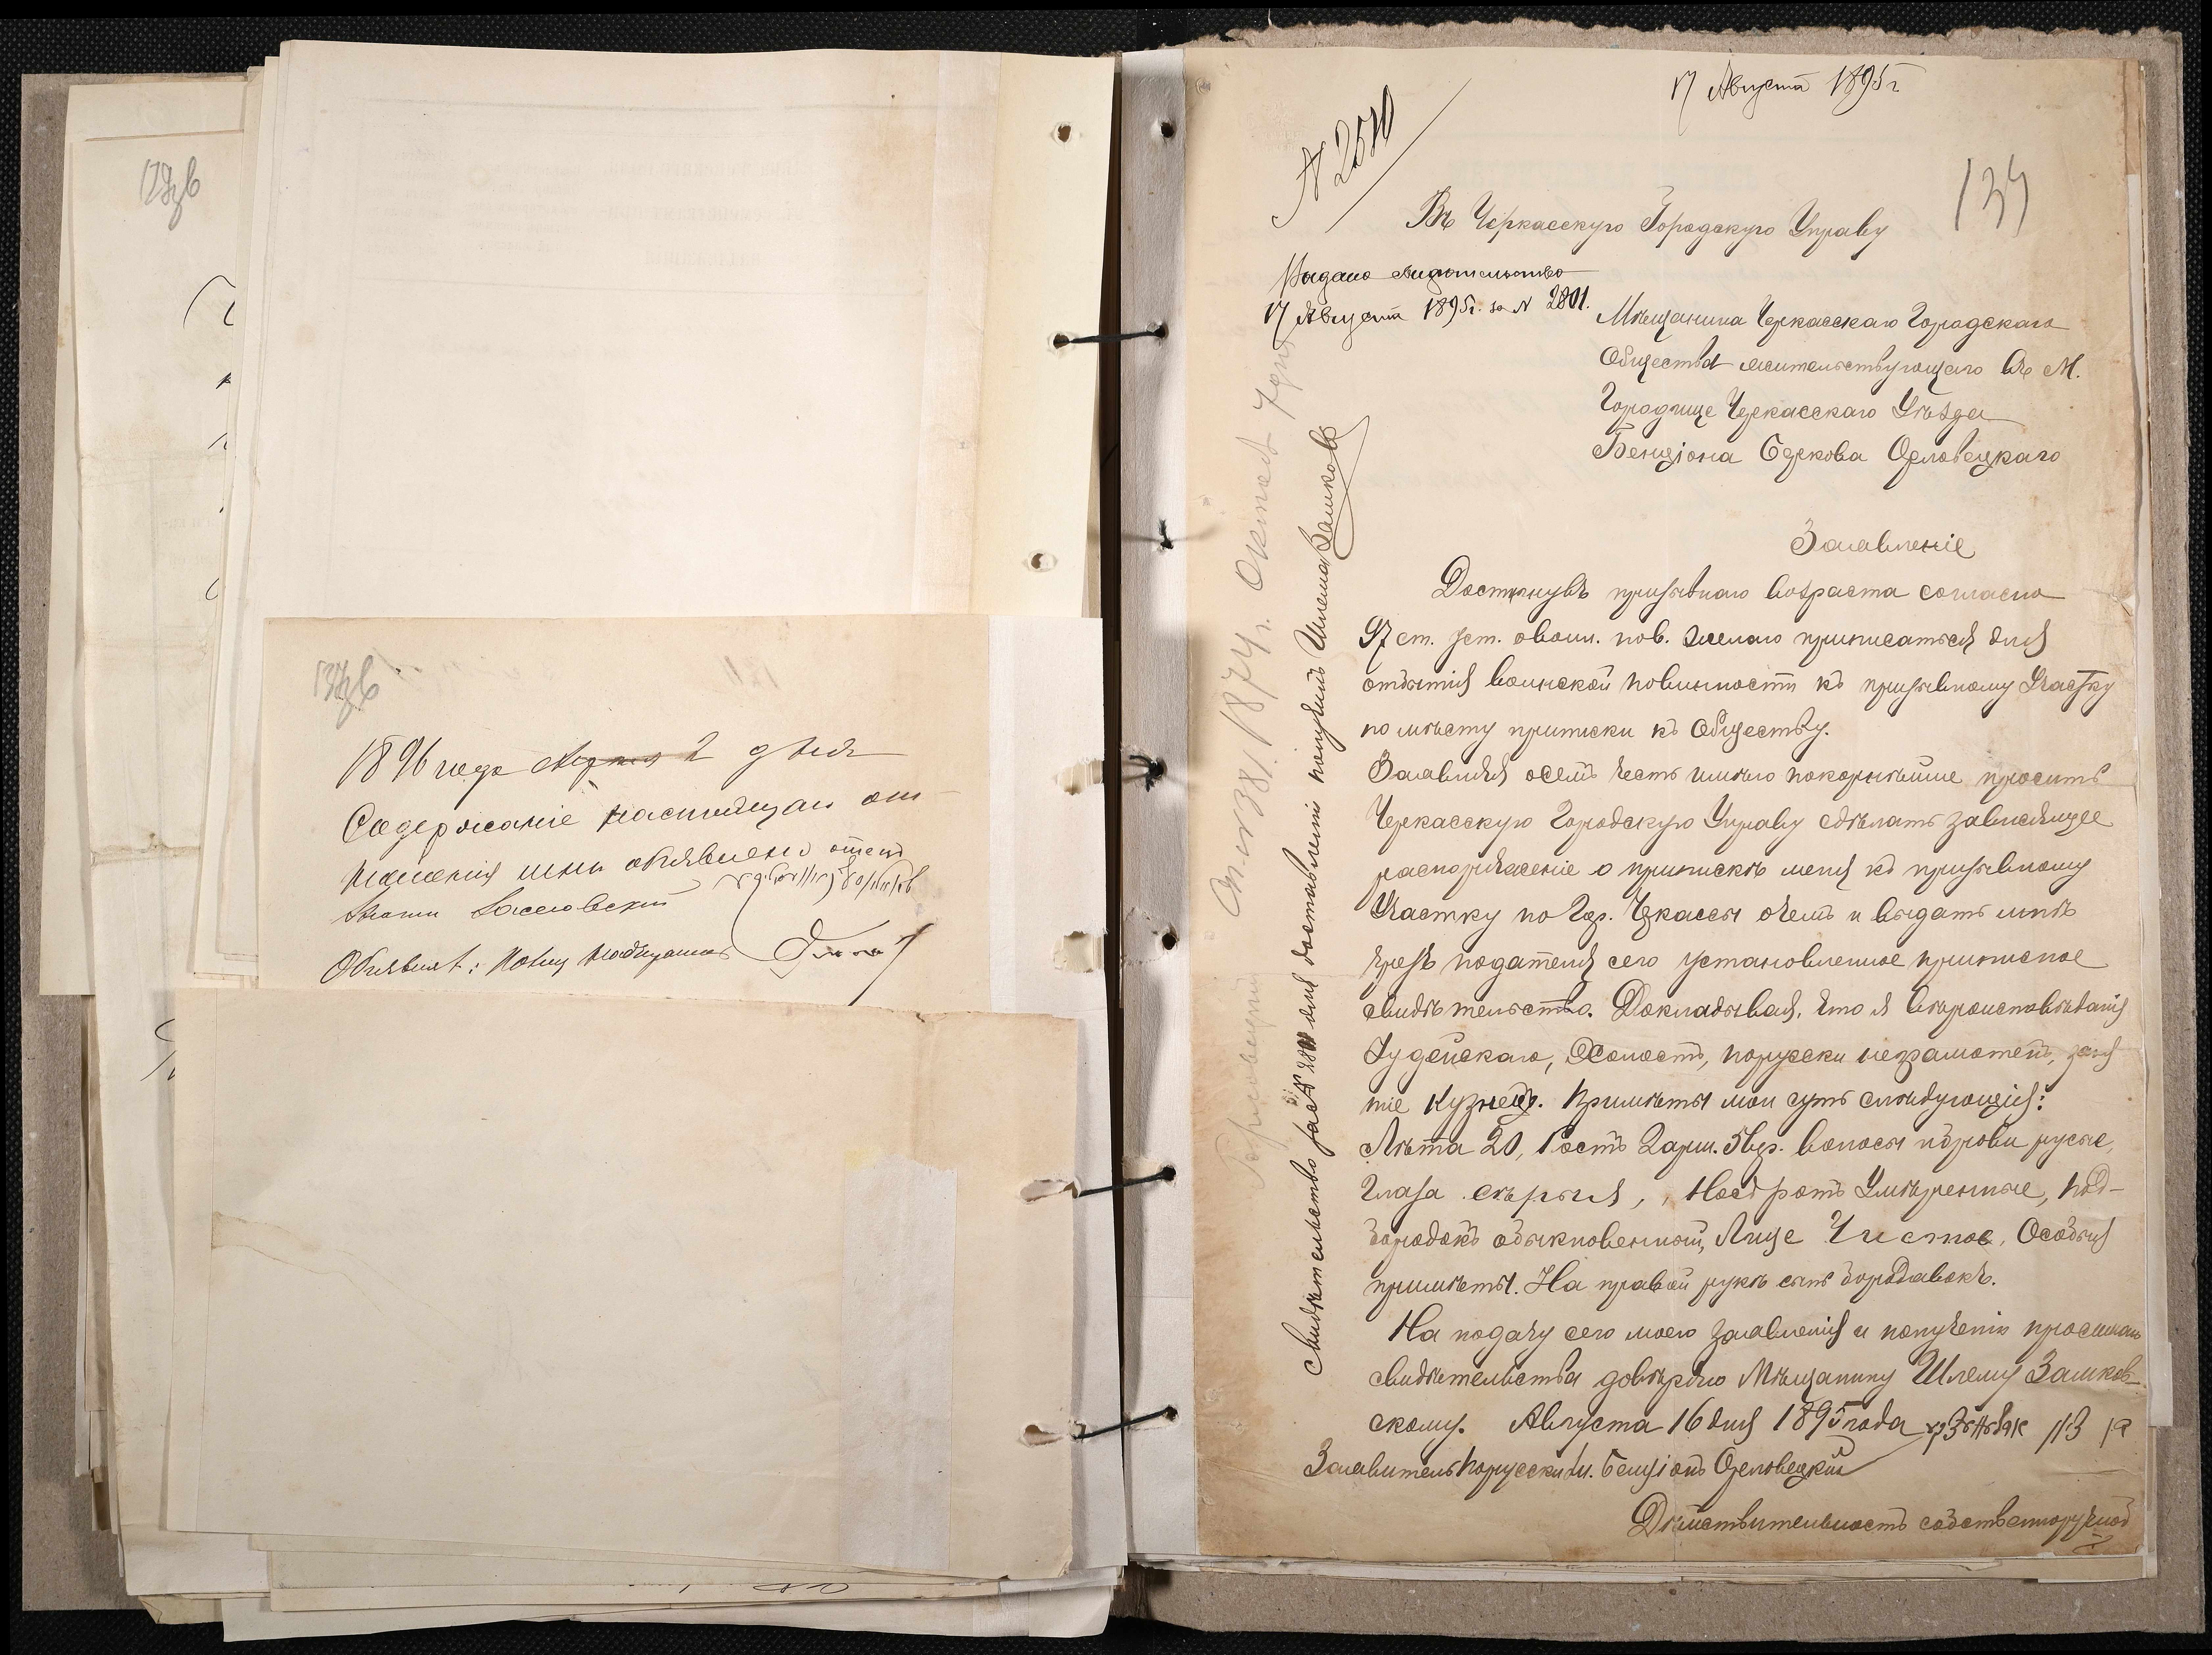 137об
1896 года Апреля 2 дня
Содержаніе настоящаго от-
ношенія мнѣ объявлено отецъ
Объявилъ:
17 Августа 1895 г.
№ 2570
139
Въ Черкасскую Городскую Управу
Выдано свидѣтельство
17 Августа 1895 г. за № 2801.
Мѣщанина Черкасскаго Городскаго
Общества жительствующаго въ М.
Городище Черкасскаго Уѣзда
Бенціона Беркова Орловецкаго
Заявленіе
Достигнувъ призывнаго возраста согласно
97 ст. уст. о воин. пов. желаю приписаться для
отбытія воинской повинности къ призывному Участку
по мѣсту приписки къ Обществу.
Заявляя о семъ честь имѣю покорнѣйше просить
Черкасскую Городскую Управу сдѣлать зависящее
распоряженіе о припискѣ меня къ призывному
Участку по Гор. Черкассы о чемъ и выдать мнѣ
чрезъ подателя сего установленное приписное
свидѣтельство. Докладывая, что я вѣроисповѣданія
Іудейскаго, Холостъ, порусски неграмотенъ, заня
тіе Кузнецъ. Примѣты мои суть слѣдующія:
Лѣта 20, Ростъ 2 арш. 5 вер. волосы и брови русые,
Глаза сѣрыя, Носъ ротъ Умѣренные, под-
бородокъ обыкновенный, Лице Чистое, Особыя
примѣты. На правой рукѣ семь бородавокъ.
На подачу сего моего заявленія и полученію просимаго
свидѣтельства довѣряю Мѣщанину Шлемѣ Зашков-
скому. Августа 16 дня 1895 года
Заявитель Порусски Бенціонъ Орловецкій
Дѣйствительность собственноручной
Свидѣтельство за № 2801 для доставленія получилъ Шлема Зашков
1874 г. Октяб